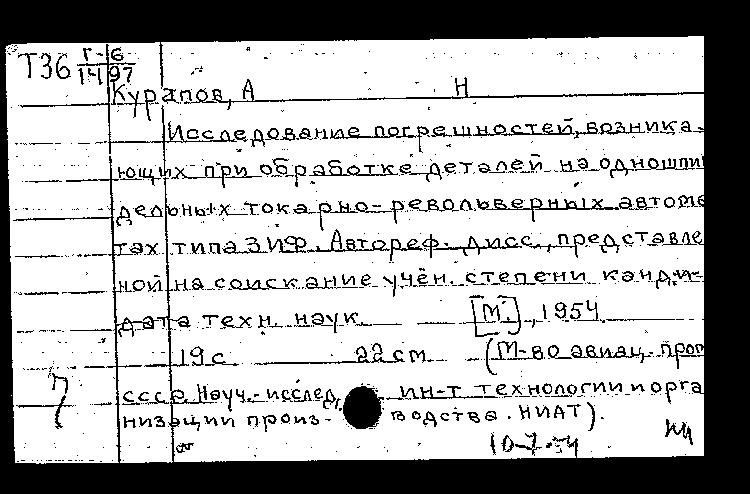 Т36 Г-6
14197
Курапов, А Н
Исследование погрешностей, возника-
ющих при обработке деталей на одношпин
дельных токарно-револьверных автома
тах типа ЗИФ. Автореф. дисс., представле
ной на соискание учён. степени канди-
дата техн. наук. [М.], 1954
19 с 22 см (М-во авиац. пром
СССР. Науч.-исслед. ин-т технологии и орга
низации произ- водства. НИАТ).
10-7-54